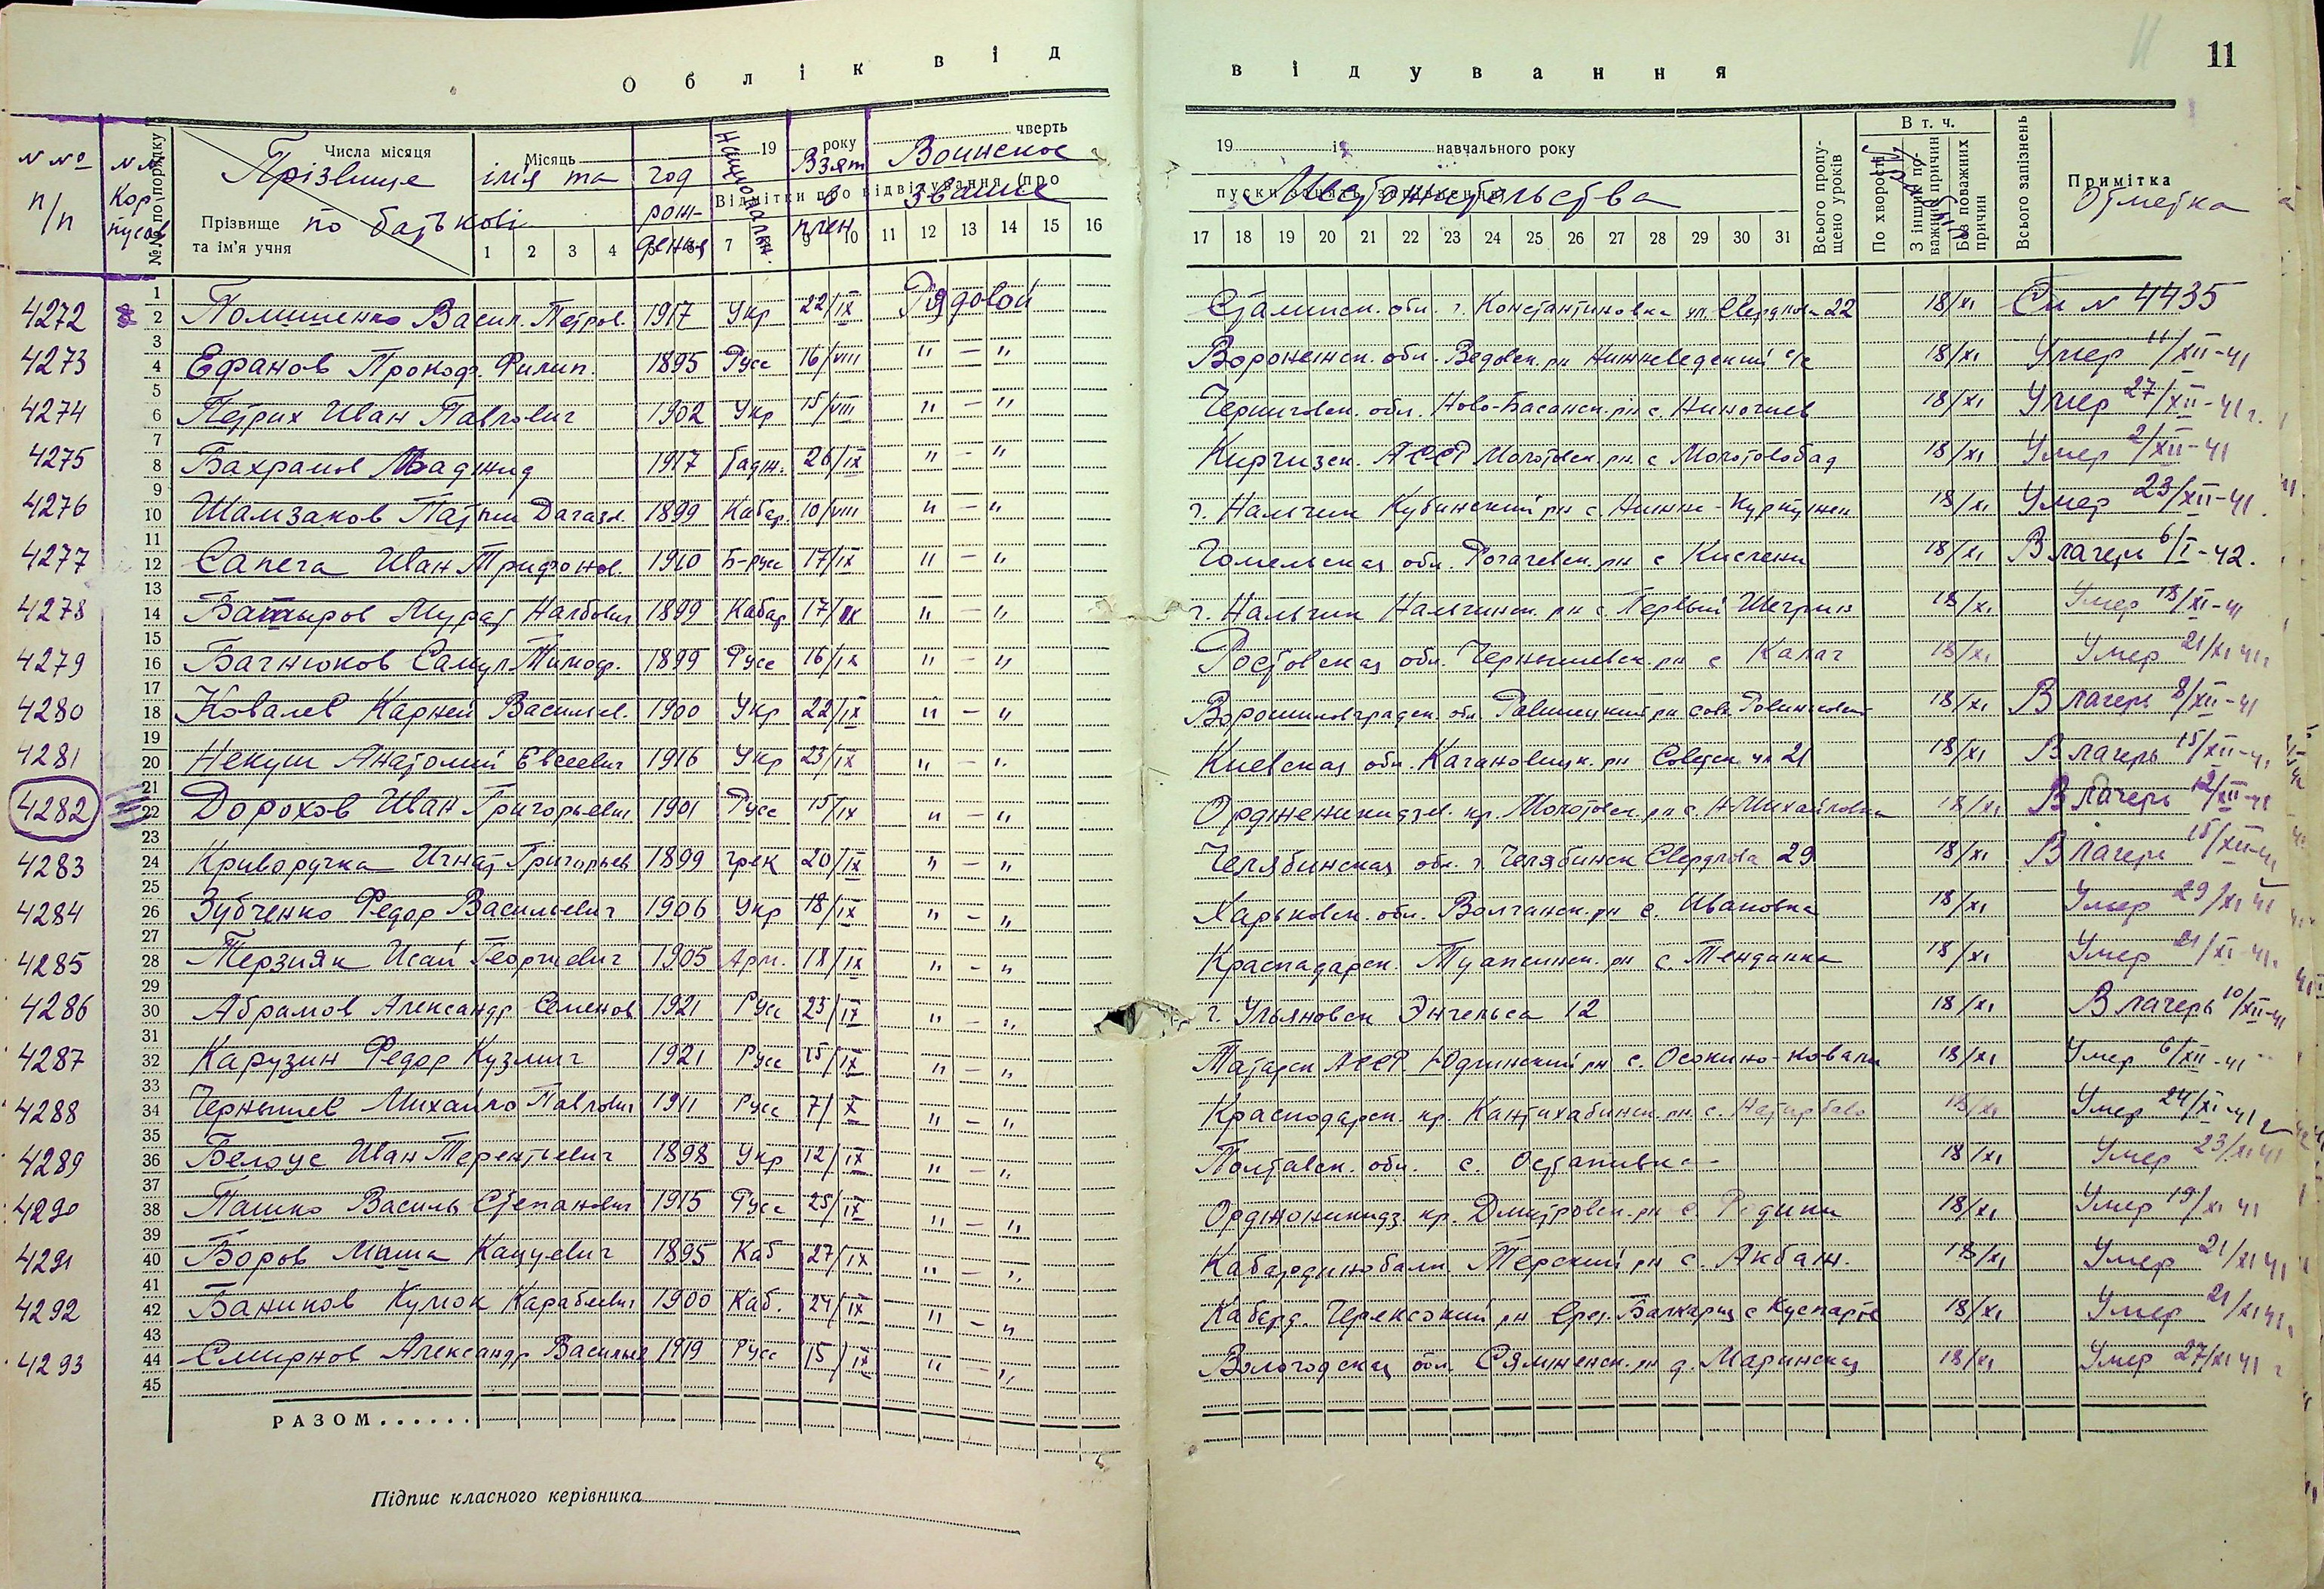 Облік від відування 11
N No п/п
N N Кор пусов
№№ по порядку
Числа місяця
Прізвище
Прізвище та ім'я учня
по батькові
Місяць
ім'я та
год рождения
Национальн.
19 року
Взят в плен
чверть
Воинское звание
Відмітки про відвідування (про
1 2 3 4 7 9 10 11 12 13 14 15 16
19 і навчального року
Местожительства
17 18 19 20 21 22 23 24 25 26 27 28 29 30 31
Всього пропущено уроків
В т. ч.
По хворості
З інших поважних причин
Без поважних причин
Всього запізнень
Примітка
Отметка
4272 8 1 2 Помишенко Васил. Петров. 1917 Укр 22/IX Рядовой Сталинск. обл. г. Константиновка ул. Свердлова 22 18/XI См N 4435
4273 3 4 Ефанов Прокоф. Филип. 1895 Русс 16/VIII " — " Воронежск. обл. Ведовск. рн Нижневедский с/с 18/XI Умер 11/XII-41
4274 5 6 Петрих Иван Павлович 1902 Укр 15/VIII " — " Черниговск. обл. Ново-Басанск. рн с. 18/XI Умер 27/XII-41 г.
4275 7 8 Бахрамов Маджид 1917 Тадж. 26/IX " — " Киргизск. АССР Молотовск. рн. с Молотовобад 18/XI Умер 2/XII-41
4276 9 10 Шамзаков 1899 Кабар. 10/VIII " — " г. Нальчик Кубинский рн с. Нижне-Куркужек 18/XI Умер 23/XII-41
4277 11 12 Сапега Иван Трифонов. 1910 Б-русс 17/IX " — " Гомельская обл. Рогачевск. рн с Кистени 18/XI В лагерь 6/I-42.
4278 13 14 Батыров Мурат Налбович 1899 Кабар 17/IX " — " г. Нальчик Нальчинск. рн с. Первый 18/XI Умер 18/XI-41
4279 15 16 Багнюков Самул. Тимоф. 1899 Русс 16/IX " — " Ростовская обл. Чернышевск. рн с Калач 18/XI Умер 21/XI 41
4280 17 18 Ковалев Карней Васильев. 1900 Укр 22/IX " — " Ворошиловградск. обл. 18/XI В лагерь 8/XII-41
4281 19 20 Некуш Анатолий Евсеевич 1916 Укр 23/IX " — " Киевская обл. Кагановицк. рн Советск. ул 21 18/XI В лагерь 15/XII-41
4282 21 22 Дорохов Иван Григорьевич 1901 Русс 15/IX " — " Орджоникидзев. кр. Молотовск. рн с. Н-Михайловка 18/XI В лагерь 12/XII-41
4283 23 24 Криворучка Игнат Григорьев 1899 грек 20/IX " — " Челябинская обл. г. Челябинск Свердлова 29 18/XI В лагерь 15/XII-41
4284 25 26 Зубченко Федор Васильевич 1906 Укр 18/IX " — " Харьковск. обл. Волчанск. рн с. Ивановка 18/XI Умер 29/XI 41
4285 27 28 Терзиян Исай Георгиевич 1905 Арм. 18/IX " — " Краснадарск. Туапсинск. рн с. Тенданка 18/XI Умер 21/XI-41.
4286 29 30 Абрамов Александр Семенов 1921 Русс 23/IX " — " г. Ульяновск Энгельса 12 18/XI В лагерь 10/XII-41
4287 31 32 Карузин Федор Кузмич 1921 Русс 15/IX " — " Татарск АССР. Юдинский рн с. Осокино-Ковали 18/XI Умер 6/XII-41
4288 33 34 Чернышев Михайло Павлович 1911 Русс 7/X " — " Краснодарск. кр. с. Натырбово 18/XI Умер 24/XI-41 г
4289 35 36 Белоус Иван Терентьевич 1898 Укр 12/IX " — " Полтавск. обл. с. Остапивка 18/XI Умер 23/XI 41
4290 37 38 Пашко Василь Степанович 1915 Русс 25/IX " — " Орджоникидз. кр. Дмитровск. рн с. Родики 18/XI Умер 19/XI 41
4291 39 40 Боров Маша Кацуевич 1895 Каб 27/IX " — " Кабардинобалк. Терский рн с. Акбаж. 18/XI Умер 21/XI 41
4292 41 42 Бажиков Кумок 1900 Каб. 24/IX " — " Каберд. Черекский рн Балкария с 18/XI Умер 21/XI 41
4293 43 44 Смирнов Александр Васильев 1919 Русс 15/IX " — " Вологодская обл. Сямженск. рн д. Маринская 18/XI Умер 27/XI 41 г
45
РАЗОМ......
Підпис класного керівника